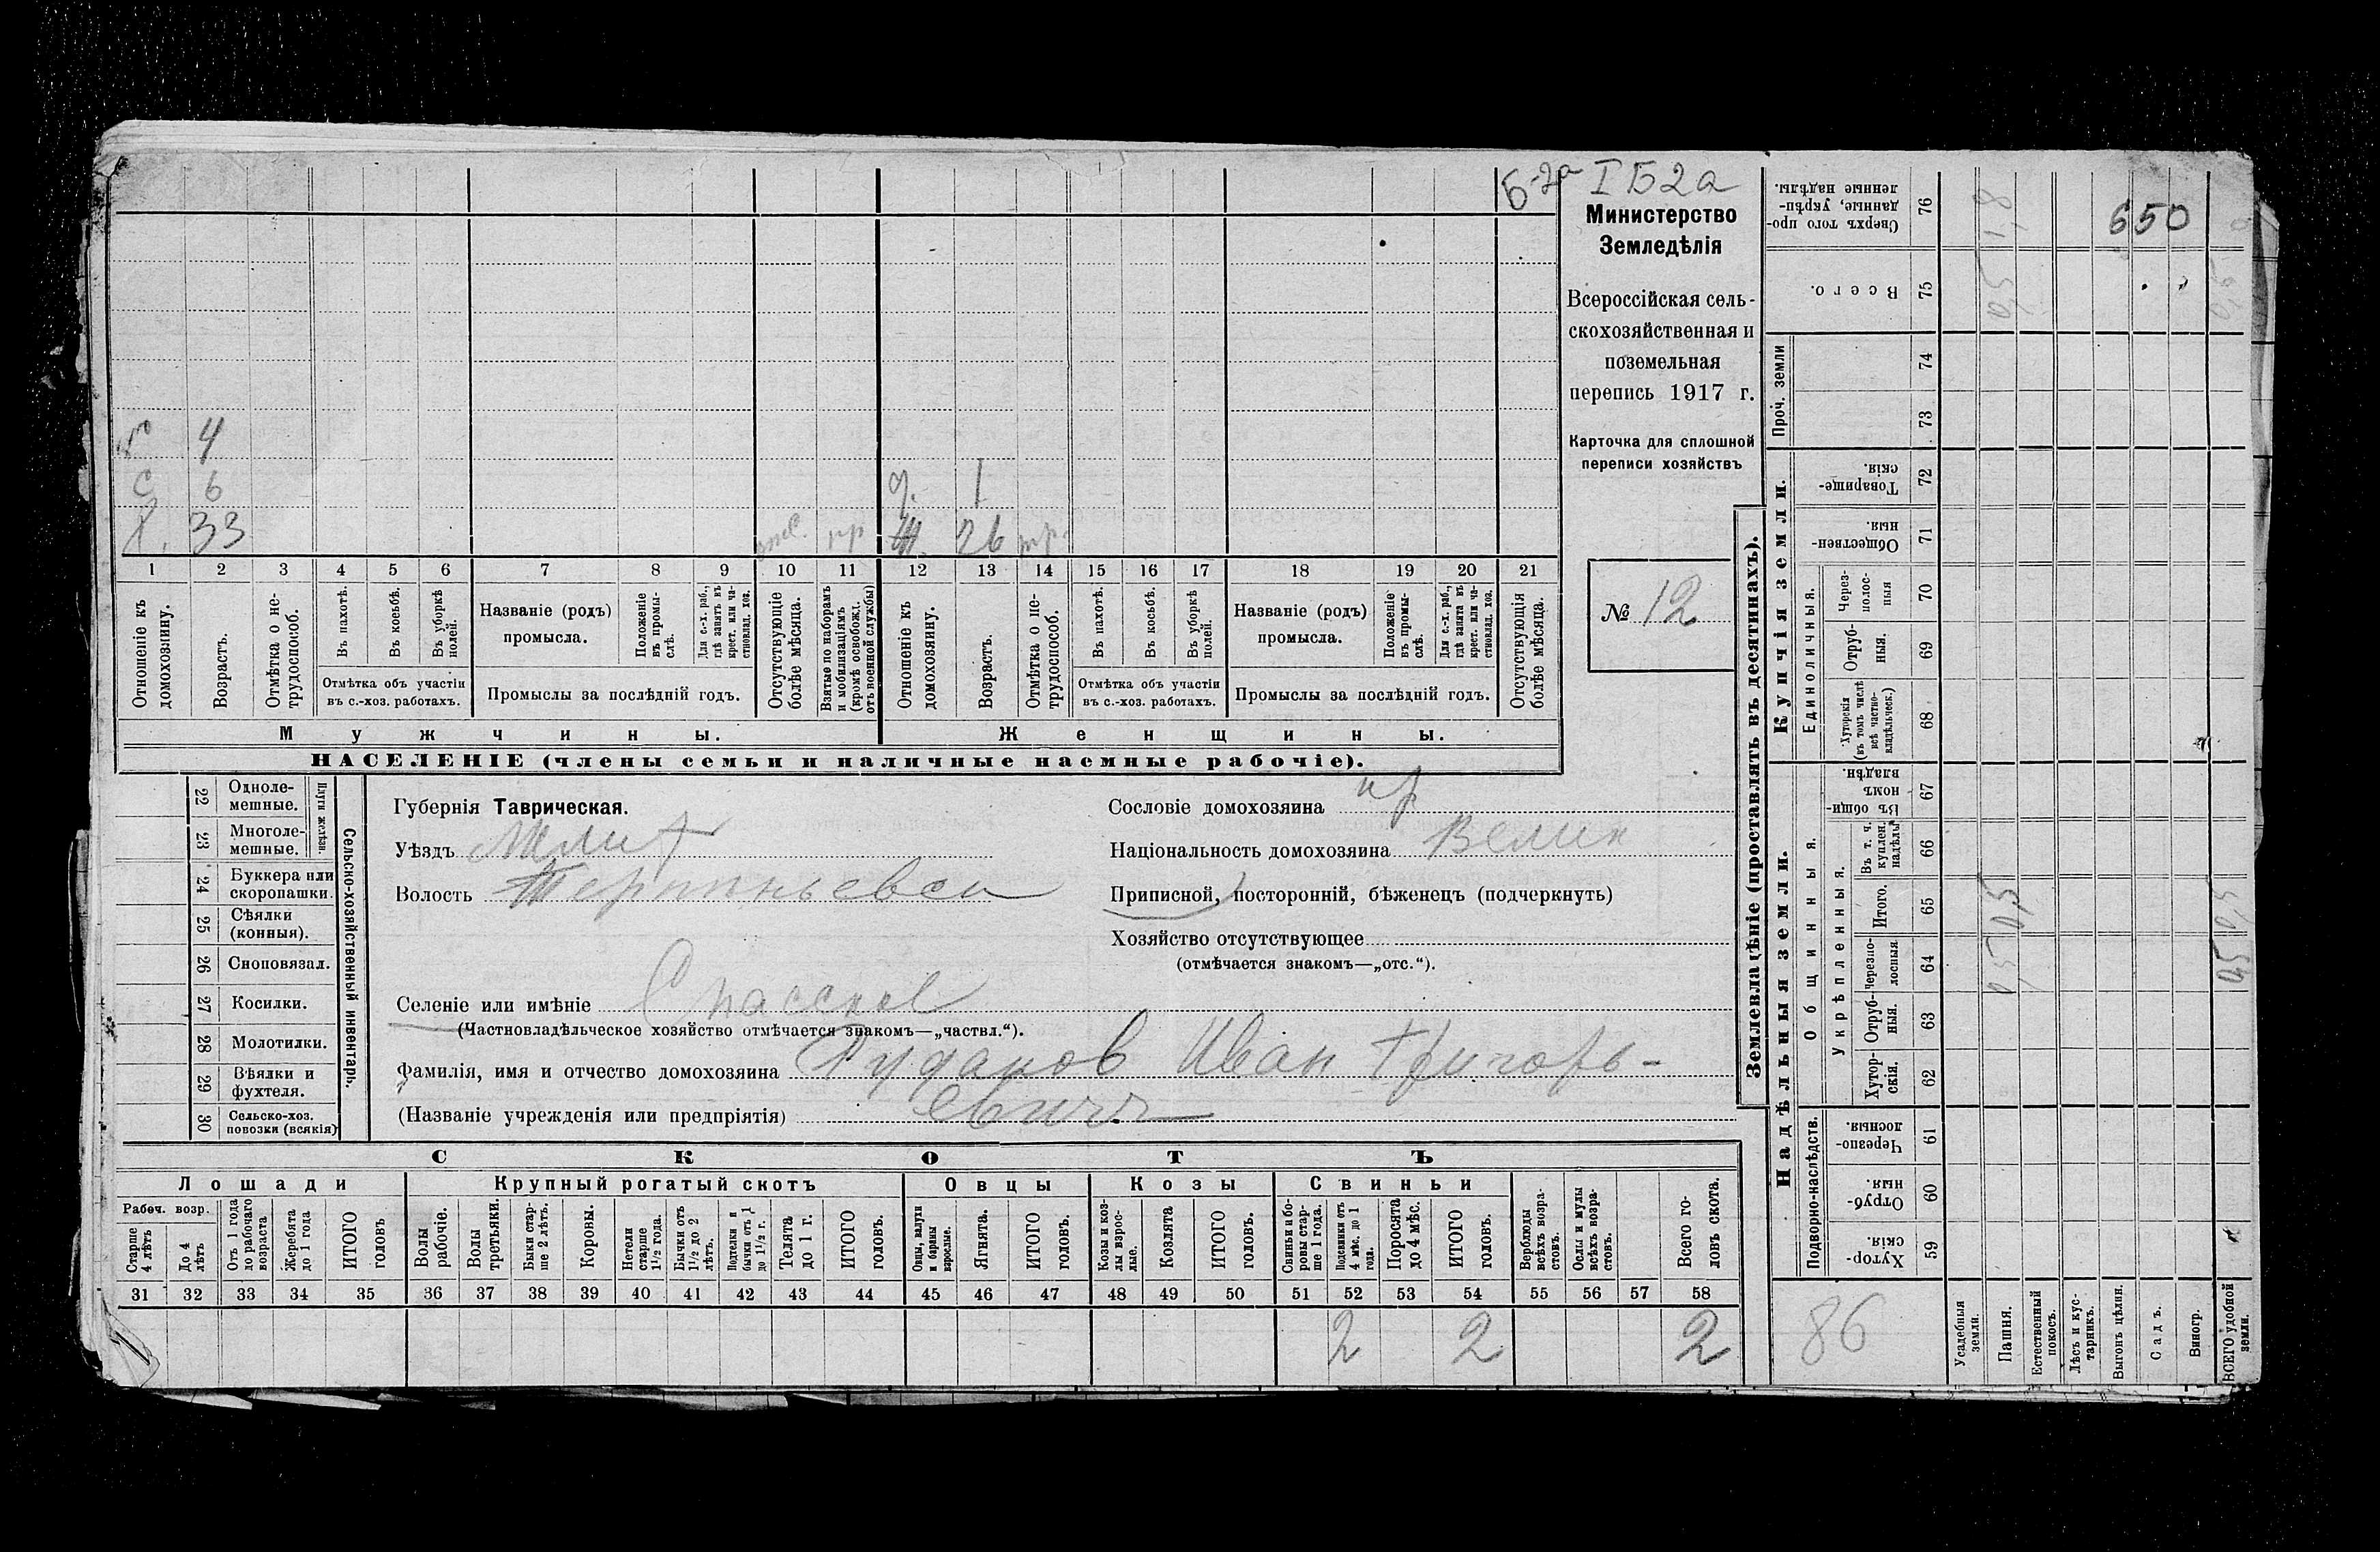 Б-2а I Б2а
Министерство
Земледѣлія
Всероссійская сель-
скохозяйственная и
поземельная
перепись 1917 г.
Карточка для сплошной
переписи хозяйствъ
№ 12
4
с 6 д. 1
Х. 33 отс. пр Ж. 26
1 2 3 4 5 6 7 8 9 10 11 12 13 14 15 16 17 18 19 20 21
Отношеніе къ домохозяину.
Возрастъ.
Отмѣтка о не-трудоспособ.
Въ пахотѣ.
Въ косьбѣ.
Въ уборкѣ полей.
Отмѣтка объ участіи въ с.-хоз. работахъ.
Названіе (родъ) промысла.
Положеніе въ промы-слѣ.
Для с.-х. раб., гдѣ занятъ въ крест. или ча-стновлад. хоз.
Промыслы за послѣдній годъ.
Отсутствующіе болѣе мѣсяца.
Взятые по наборамъ и мобилизаціямъ (кромѣ освобожд. отъ военной службы)
Отношеніе къ домохозяину.
Возрастъ.
Отмѣтка о не-трудоспособ.
Въ пахотѣ.
Въ косьбѣ.
Въ уборкѣ полей.
Отмѣтка объ участіи въ с.-хоз. работахъ.
Названіе (родъ) промысла.
Положеніе въ промы-слѣ.
Для с.-х. раб., гдѣ занята въ крест. или ча-стновлад. хоз.
Промыслы за послѣдній годъ.
Отсутствующія болѣе мѣсяца.
Мужчины. Женщины.
НАСЕЛЕНІЕ (члены семьи и наличные наемные рабочіе).
22 Одноле-мешные.
23 Многоле-мешные.
Плуги желѣзн.
24 Буккера или скоропашки.
25 Сѣялки (конныя).
26 Сноповязал.
27 Косилки.
28 Молотилки.
29 Вѣялки и фухтеля.
30 Сельско-хоз. повозки (всякія)
Сельско-хозяйственный инвентарь.
Губернія Таврическая.
Уѣздъ Мелит
Волость Терпеньевск
Селеніе или имѣніе Спасское
(Частновладѣльческое хозяйство отмѣчается знакомъ—„частвл.“).
Фамилія, имя и отчество домохозяина Рудаков Иван Григорь-
(Названіе учрежденія или предпріятія) евич
Сословіе домохозяина кр
Національность домохозяина Велик
Приписной, посторонній, бѣженецъ (подчеркнуть)
Хозяйство отсутствующее
(отмѣчается знакомъ—„отс.“).
СКОТЪ
Лошади Крупный рогатый скотъ Овцы Козы Свиньи
Рабоч. возр.
Старше 4 лѣтъ
До 4 лѣтъ
Отъ 1 года до рабочаго возраста
Жеребята до 1 года
ИТОГО головъ
Волы рабочіе.
Волы третьяки.
Быки стар-ше 2 лѣтъ.
Коровы.
Нетели старше 1½ года.
Бычки отъ 1½ до 2 лѣтъ.
Подтелки и бычки отъ 1 до 1½ г.
Телята до 1 г.
ИТОГО головъ.
Овцы, валухи и бараны взрослые.
Ягнята.
ИТОГО головъ.
Козы и коз-лы взрос-лые.
Козлята
ИТОГО головъ.
Свиньи и бо-ровы стар-ше 1 года.
Подсвинки отъ 4 мѣс. до 1 года.
Поросята до 4 мѣс.
ИТОГО головъ.
Верблюды всѣхъ возра-стовъ.
Ослы и мулы всѣхъ возра-стовъ.
Всего го-ловъ скота.
31 32 33 34 35 36 37 38 39 40 41 42 43 44 45 46 47 48 49 50 51 52 53 54 55 56 57 58
2 2 2
Землевладѣніе (проставлять въ десятинахъ).
Надѣльныя земли. Купчія земли. Проч. земли
Подворно-наслѣдств.
Общинныя.
Укрѣпленныя.
Единоличныя.
Хутор-скія. 59
Отруб-ныя. 60
Черезпо-лосныя. 61
Хутор-скія. 62
Отруб-ныя. 63
Черезпо-лосныя 64
Итого. 65
Въ т. ч. куплен. надѣлы 66
Въ общи-номъ владѣн. 67
Хуторскія (въ томъ числѣ всѣ частно-владѣльческ.) 68
Отруб-ныя. 69
Через-полос-ныя 70
Обществен-ныя. 71
Товарище-скія. 72
73
74
Всего. 75
Сверхъ того про-данные, укрѣп-ленные надѣлы. 76
650
86
Усадебныя земли.
Пашня.
Естественный покосъ.
Лѣсъ и кус-тарникъ.
Выгонъ цѣлин.
Садъ.
Виногр.
ВСЕГО удобной земли.